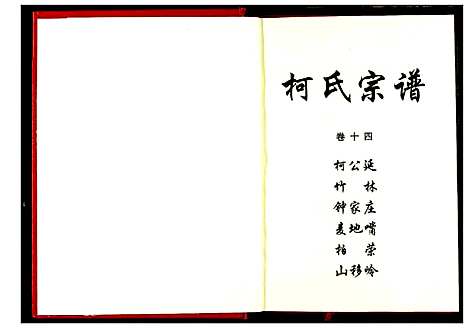 柯氏宗谱
卷十四
柯公延
竹林
钟家庄
麦地嘴
柏荣
山移岭